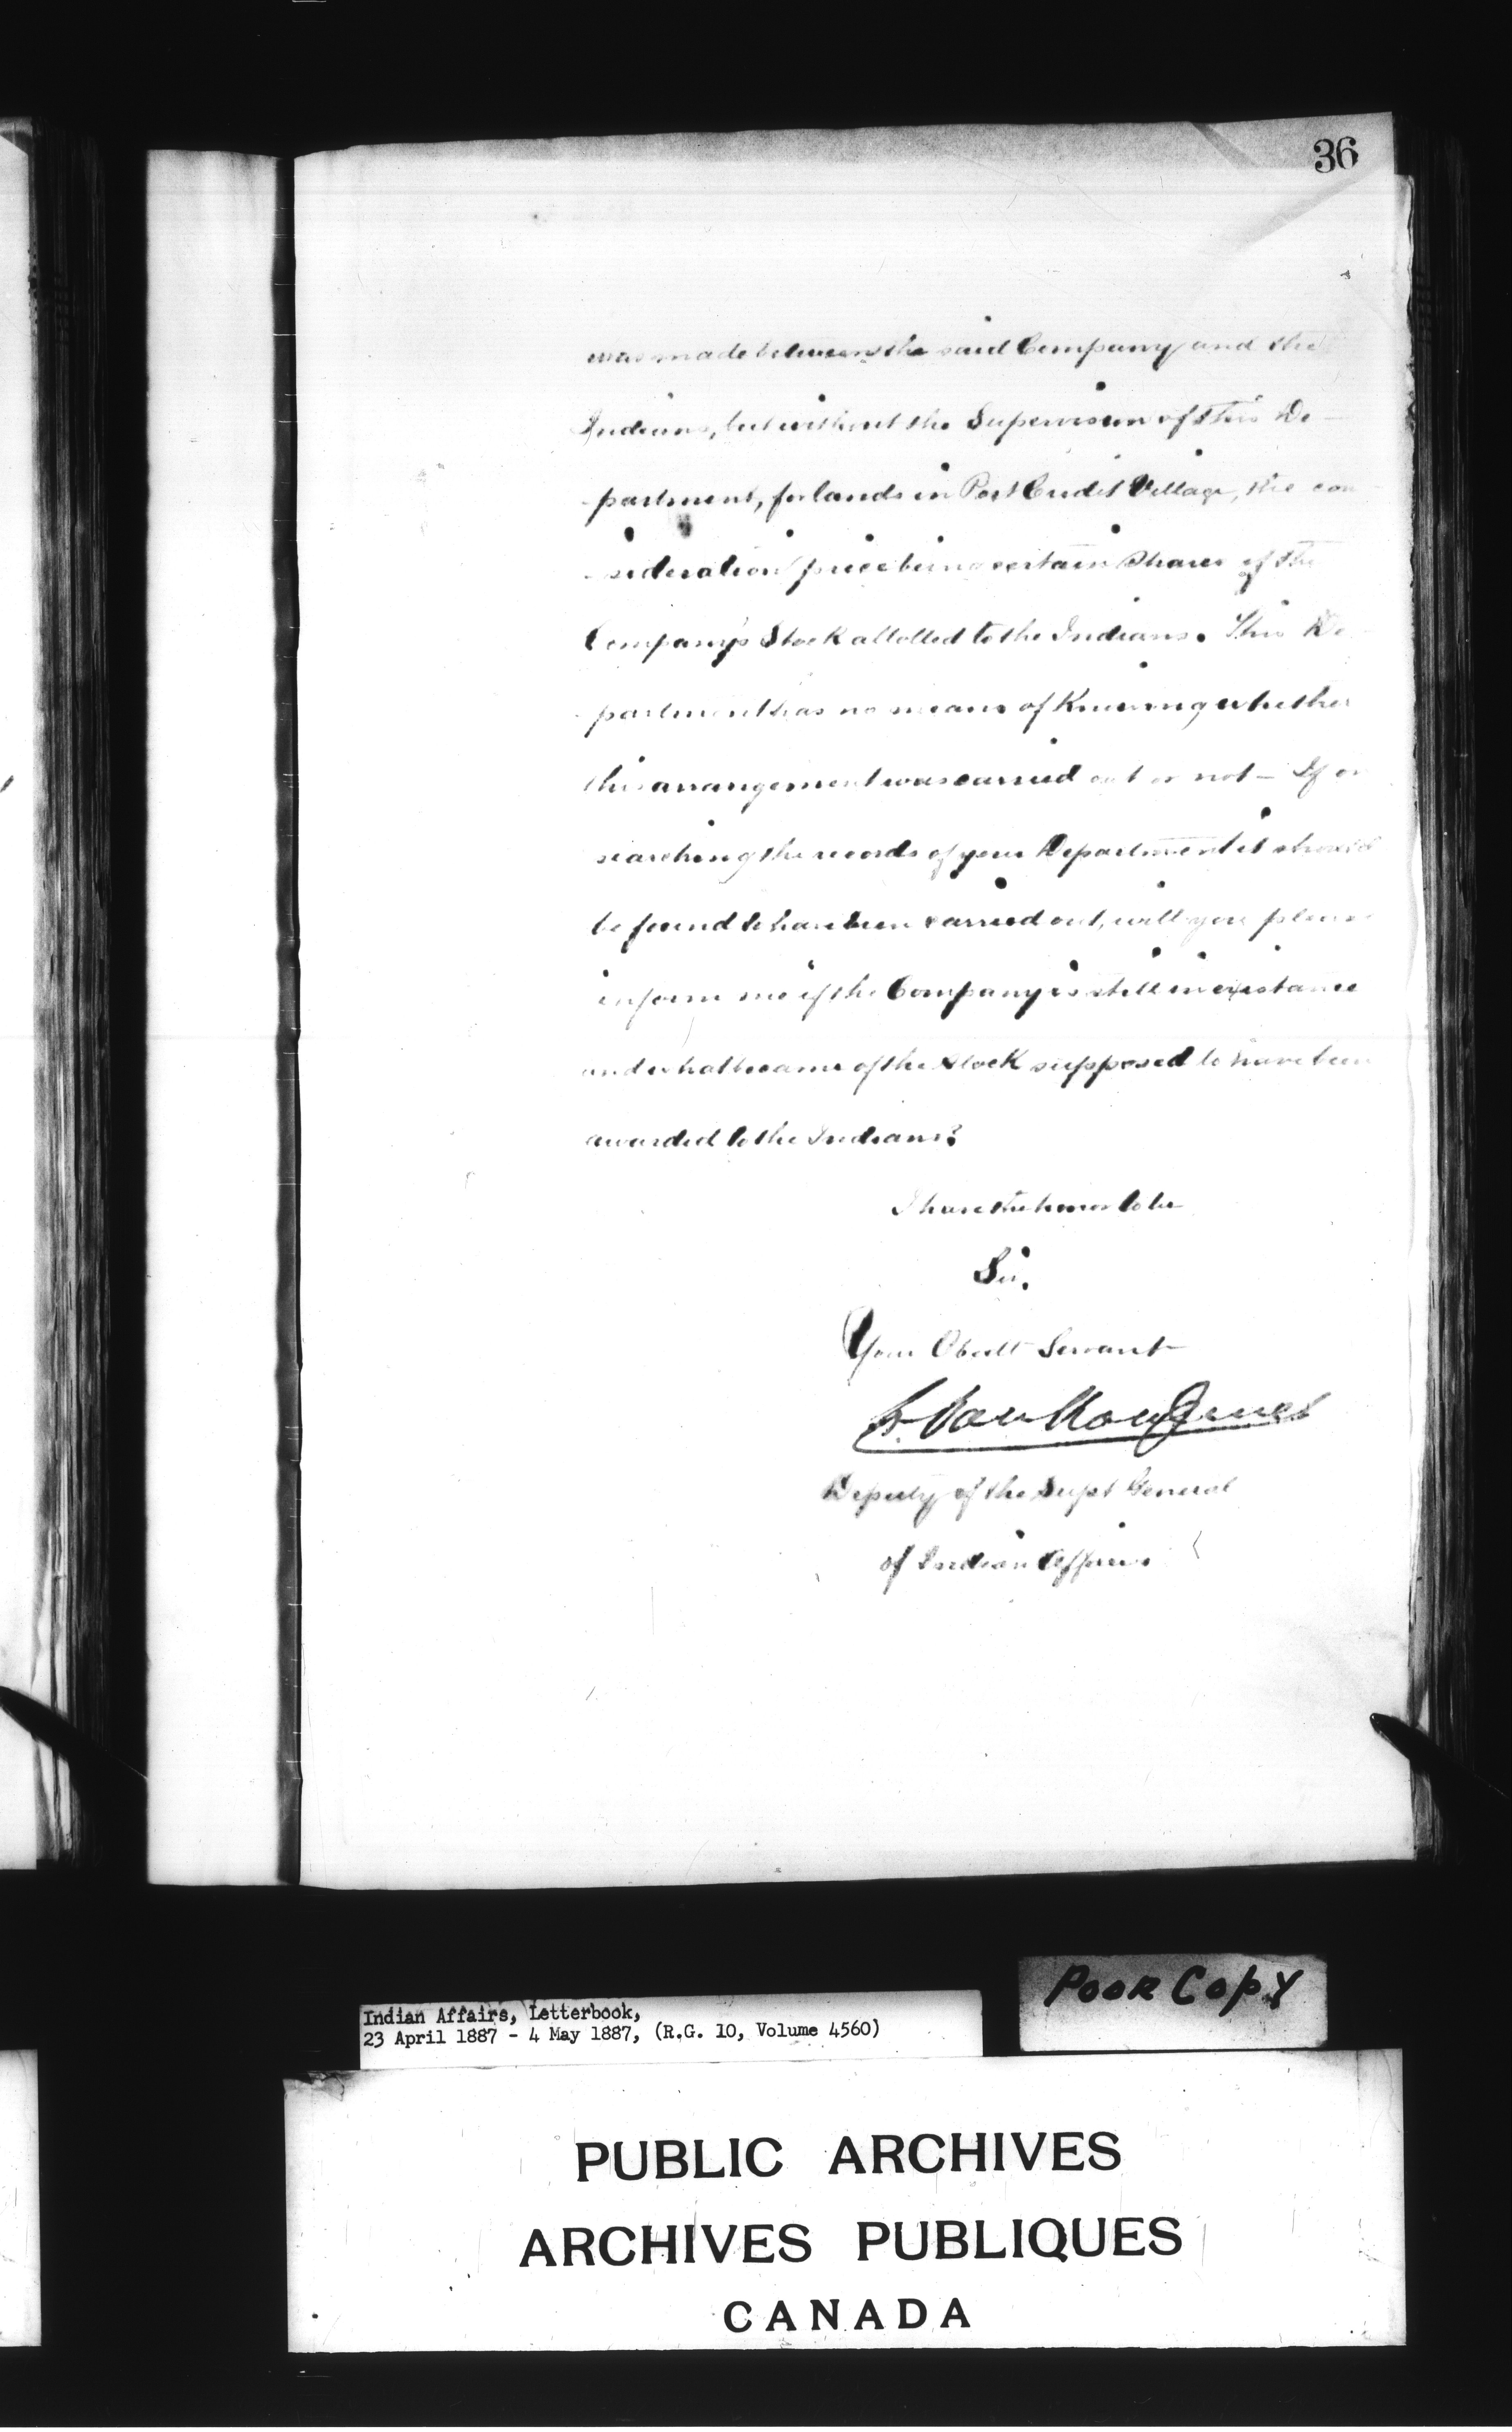 36
was made between the said Company and the
Indians, but without the Supervision of this De-
-partment, for lands in Port Credit Village, the con
-sideration price being certain Shares of the
Company's Stock allotted to the Indians. This De
-partment has no means of Knowing whether
this arrangement was carried out or not - If on
searching the records of your Department it should
be found to have been carried out, will you please
inform me if the Company is still in existance
and what became of the stock supposed to have been
awarded to the Indians?
I have the honor to be
Sir.
Your Obedt Servant
L. VanKoughnet
Deputy of the Supt General
of Indian Affairs
POOR COPY
Indian Affairs, Letterbook,
23 April 1887 - 4 May 1887, (R.G. 10, Volume 4560)
PUBLIC ARCHIVES
ARCHIVES PUBLIQUES
CANADA